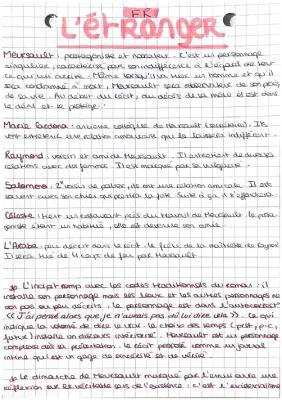 FR
L'étranger
Meursault : protagoniste et narrateur. C'est un personnage
singulier, caractérisé par son indifférence à l'égard de tout
ce qui lui arrive. Même lorsqu'il tue un homme et qu'il
sera condamné à mort, Meursault sera observateur de son procès
de sa vie. Au début du récit, au décès de sa mère il est dans
le déni et se protège.
Marie Cardona : ancienne collègue de Meursault (secrétaire). Ils
vont entretenir une relation amoureuse qui le laissera indifférent.
Raymond : voisin et ami de Meursault. Il entretient de diverses
relations avec des femmes. Il est marqué par la vulgarité.
Salamano : voisin de palier, ils ont une relation amicale. Il est
souvent avec son chien qui
Céleste : tient un restaurant près du travail de Meursault. Le
est devenue son amie.
L'Arabe : peu décrit dans le récit. le frère de la maîtresse de Raymond
Il sera tué de 4 coups de feu par Meursault.
L'incipit rompt avec les codes traditionnels du roman : il
installe son personnage mais les lieux et les autres personnages ne
sont pas ou peu décrits. le personnage est dans l'
« J'ai pensé alors que je n'aurais pas dû lui dire cela ». Ce qui
indique la volonté de dire le vrai. le choix des temps (prst, p.c,
futur) installe un discours intérieur. Meursault est un personnage
complexe dès sa présentation. le récit proposé comme un journal
intime qui est un gage de sincérité et de vérité
Le dimanche de Meursault marqué par l'ennui ouvre une
réflexion sur le véritable sens de l'existence : c'est l'existentialisme